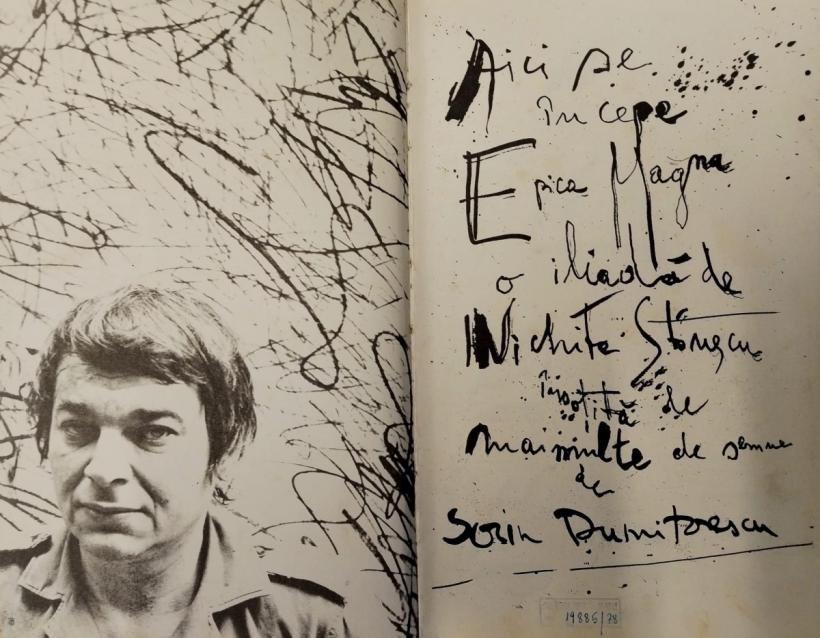 Aici se
începe
Epica Magna
o iliadă de
Nichita Stănescu
însoțită de
mai multe de semne
de
Sorin Dumitrescu
19885/78